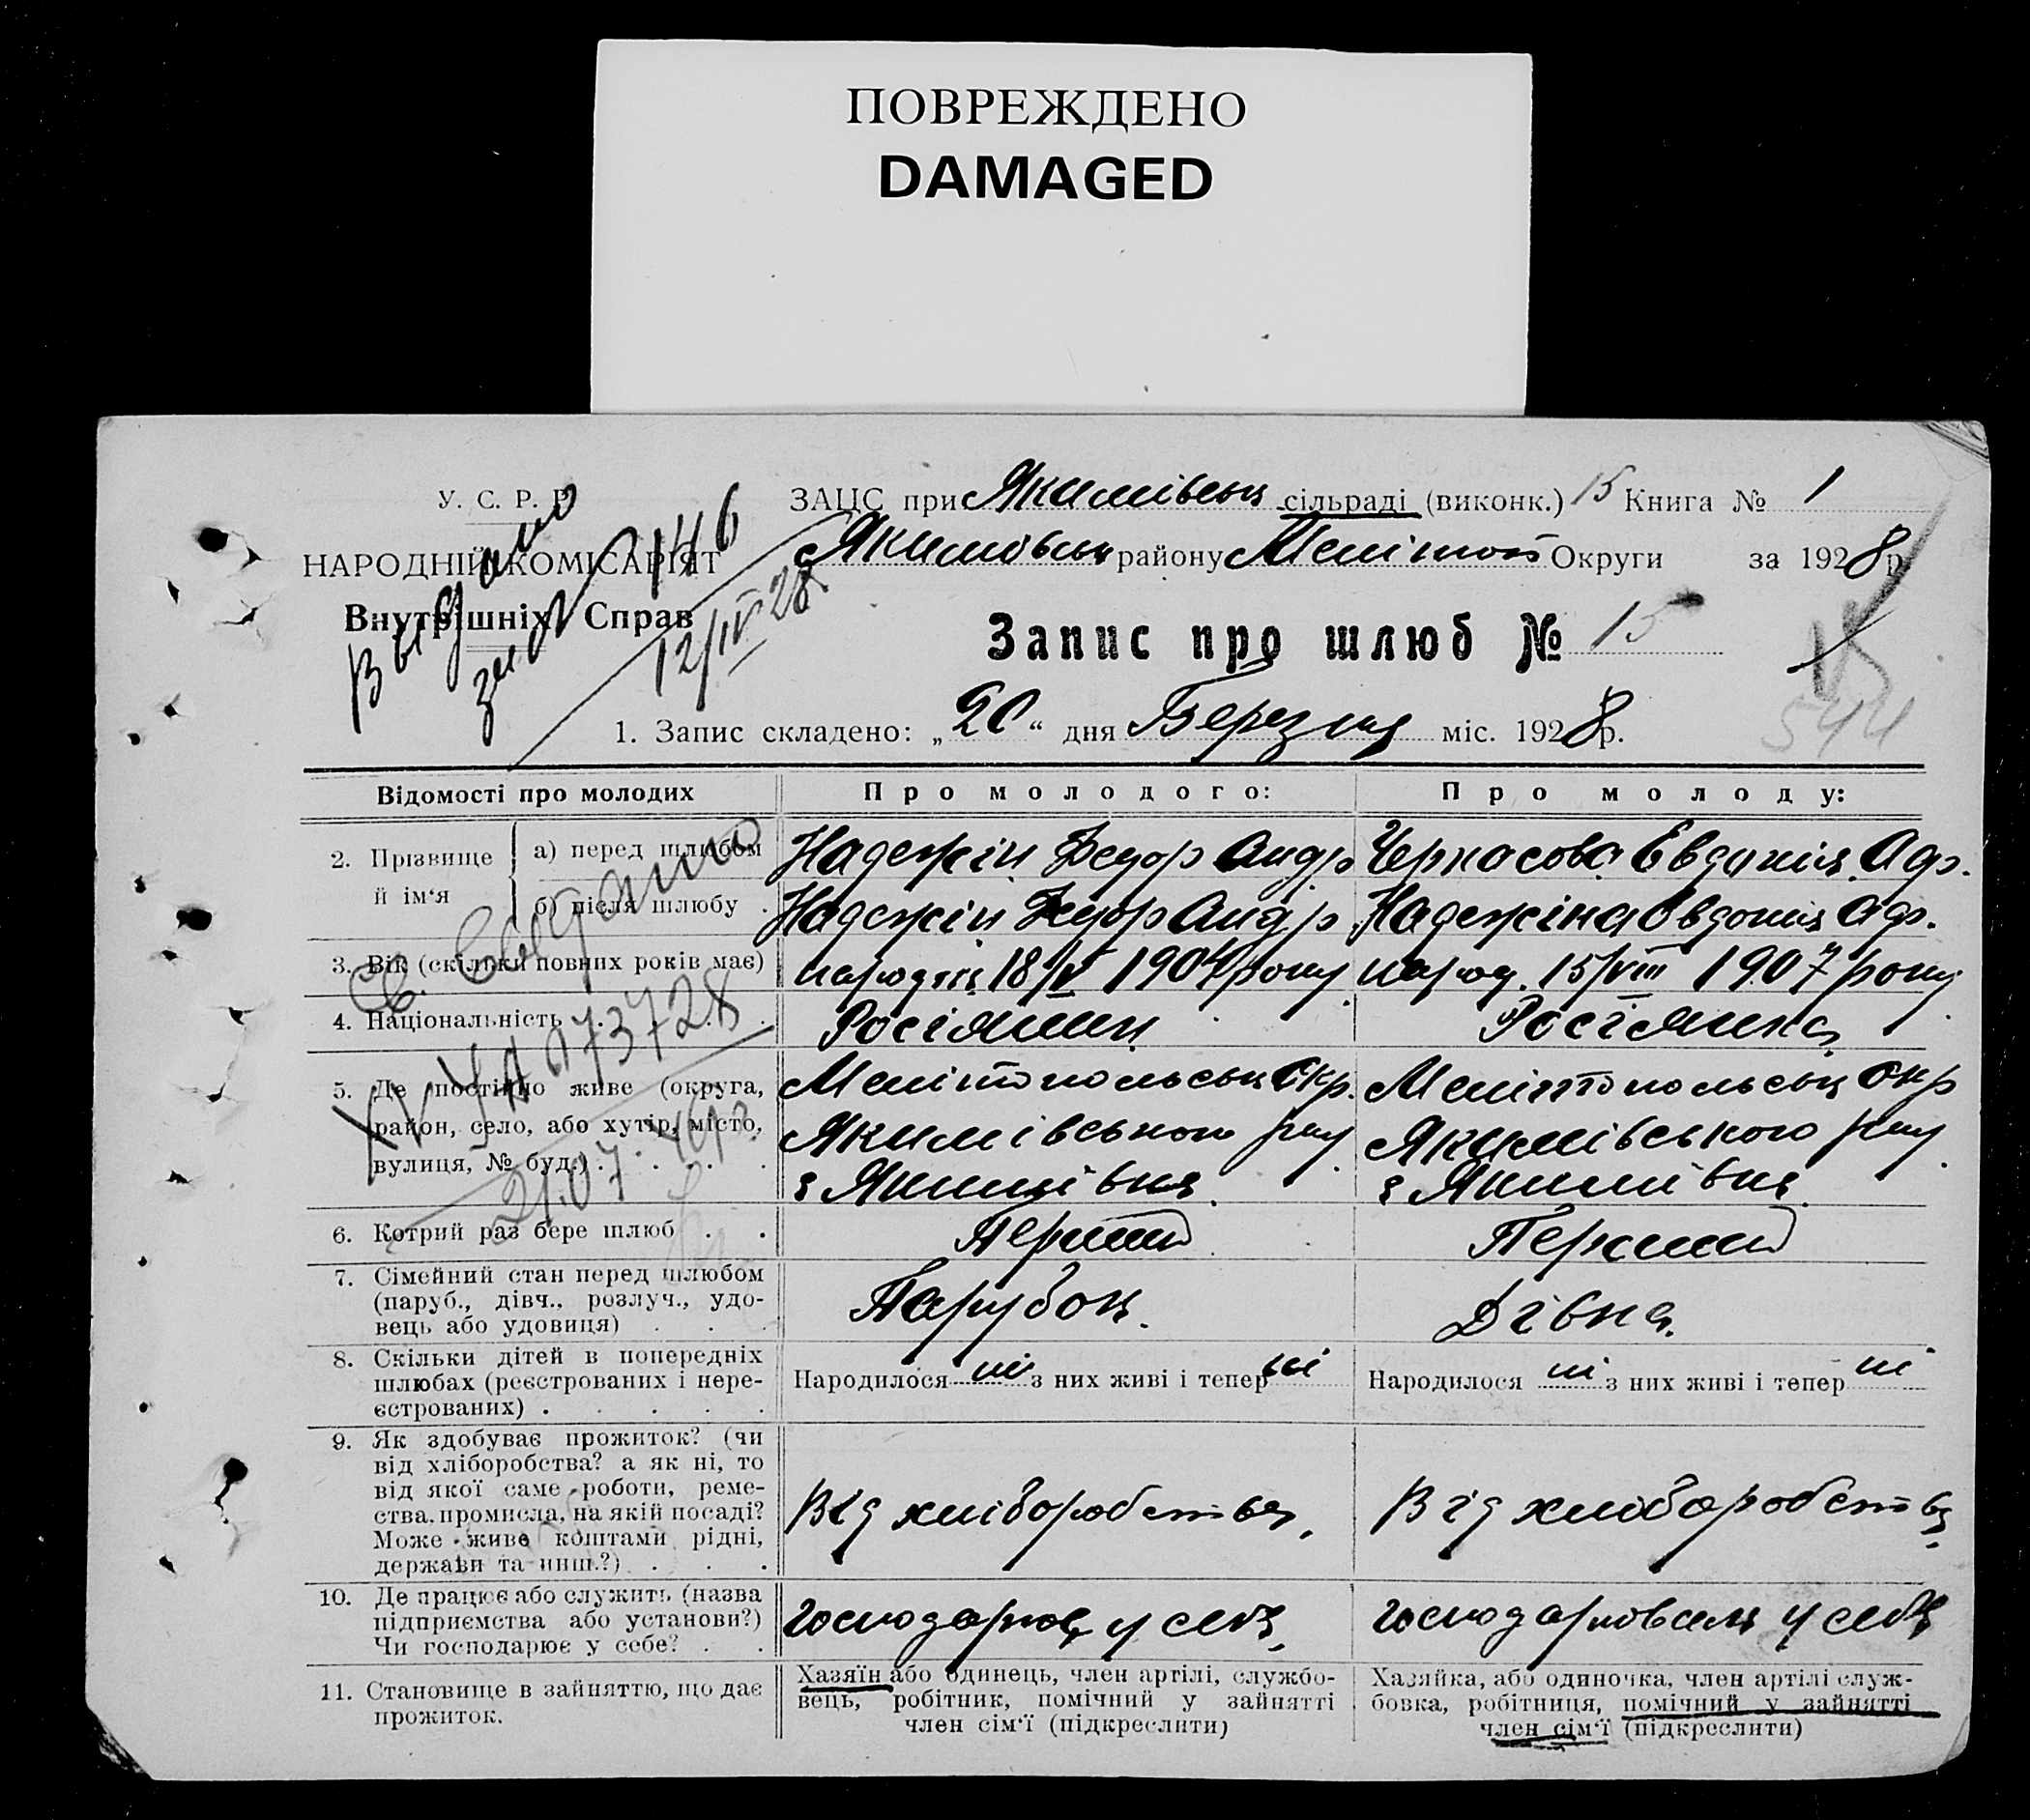 ПОВРЕЖДЕНО
DAMAGED
У. С. Р. Р.
НАРОДНІЙ КОМІСАРІЯТ
Внутрішніх Справ
Выдано
146
12/IV 28
ЗАЦС при Якимівськ сільраді (виконк.) 15 Книга № 1
Якимівськ району Мелітоп Округи за 1928 р.
Запис про шлюб № 15
15
544
1. Запис складено: „20“ дня Березня міс. 1928 р.
Відомості про молодих
Про молодого:
Про молоду:
2. Прізвище й ім‘я
а) перед шлюбом
Надежін Федор Андр
Черкасова Евдокія Адр.
б) після шлюбу .
Надежін Федор Андр
Надежіна Овдокія Адр.
3. Вік (скільки повних років має)
народж 18/IV 1904 року
народ. 15/VIII 1907 року
4. Національність . . .
Росіянин
Росіянка
Св. выдано
5. Де постійно живе (округа,
район, село, або хутір, місто,
вулиця, № буд.) . . . .
Мелітопольськ Окр.
Якимівського р-ну
з Якимівка
Мелітопольськ окр
Якимівського р-ну
з Якимівка
6. Котрий раз бере шлюб . .
Перший
Перший
7. Сімейний стан перед шлюбом
(паруб., дівч., розлуч., удо-
вець або удовиця) . . .
Парубок.
Дівка.
8. Скільки дітей в попередніх
шлюбах (реєстрованих і нере-
єстрованих) . . . . .
Народилося ні з них живі і тепер ні
Народилося ні з них живі і тепер ні
9. Як здобуває прожиток? (чи
від хліборобства? а як ні, то
від якої саме роботи, реме-
ства, промисла, на якій посаді?
Може живе коштами рідні,
держави та инш.?) . . .
Від хліборобства,
Від хліборобства,
10. Де працює або служить (назва
підприємства або установи?)
Чи господарює у себе? . .
господарює у себе,
у себе
11. Становище в зайняттю, що дає
прожиток.
Хазяїн або одинець, член артілі, службо-
вець, робітник, помічний у зайнятті
член сім‘ї (підкреслити)
Хазяйка, або одиночка, член артілі служ-
бовка, робітниця, помічний у зайнятті
член сім‘ї (підкреслити)